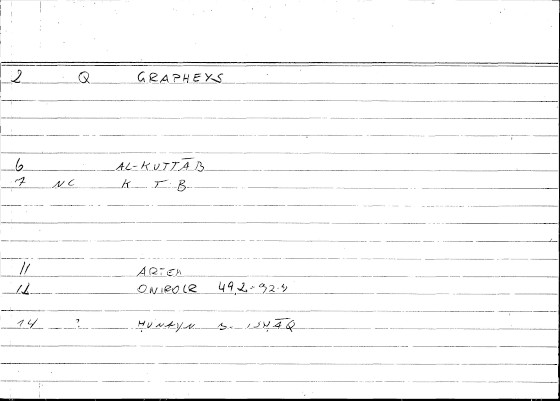 2 Q GRAPHEYS
6 AL-KUTTĀB
7 NC K T B
11 ARTEM
12 ONIROCR 49,2-92.4
14 ? ḤUNAYN B. ISḤĀQ